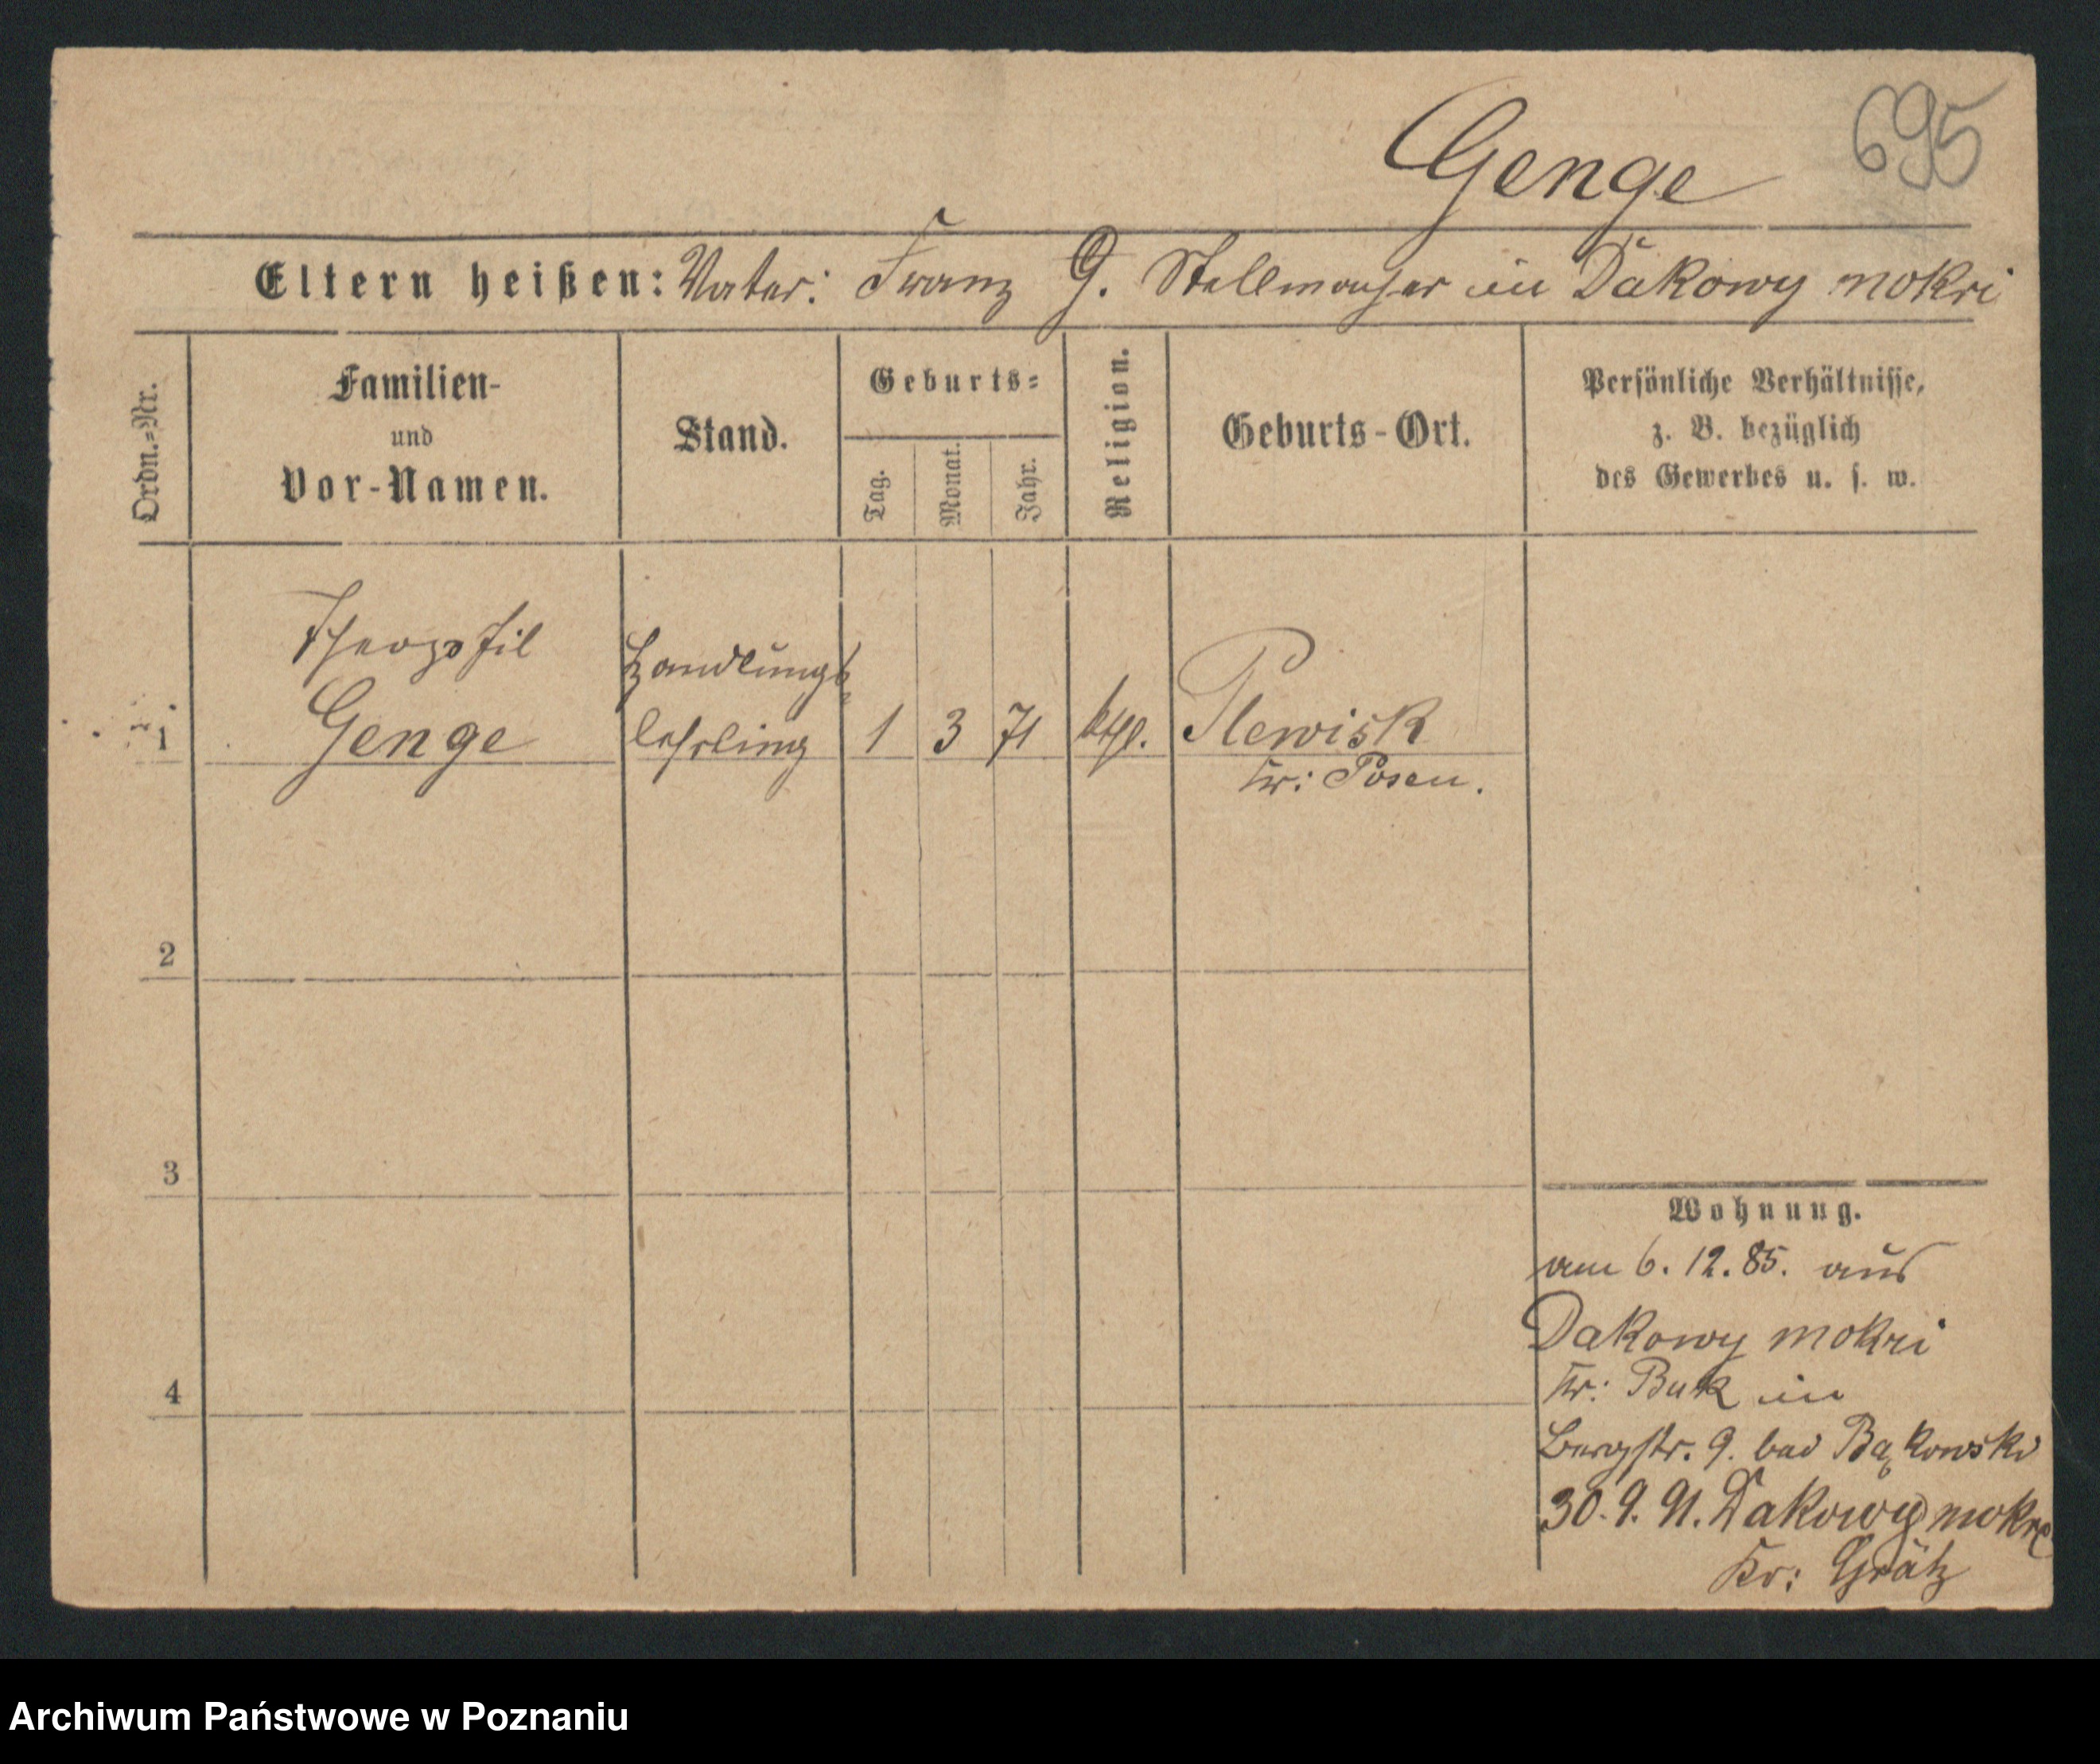 695
Genge
Eltern heißen: Vater: Franz G. Stellmacher in Dakowy mokri
Ordn.=Nr.
Familien-
und
Vor-Namen.
Stand.
Geburts=
Tag.
Monat.
Jahr.
Religion.
Geburts-Ort.
Persönliche Verhältnisse,
z. B. bezüglich
des Gewerbes u. s. w.
Theophil
Genge
Handlungs=
lehrling
1
1
3
71
kthl.
Plewisk
Kr: Posen.
2
3
4
Wohnung.
am 6. 12. 85. aus
Dakowy mokri
Kr: Buk in
Bergstr. 9. bei Bąkowski
30. 9. 91. Dakowy mokre
Kr: Grätz
Archiwum Państwowe w Poznaniu